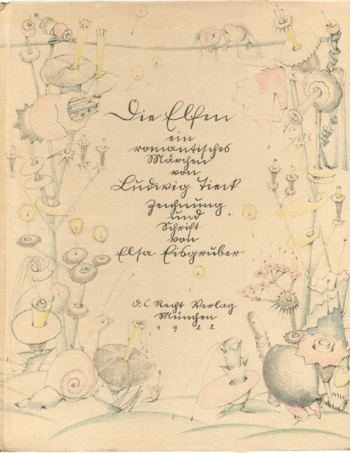 Die Elfen
ein
romantisches
Märchen
von
Ludwig Tieck
Zeichnung
und
Schrift
von
Elsa Eisgruber
O. C. Recht Verlag
München
1922